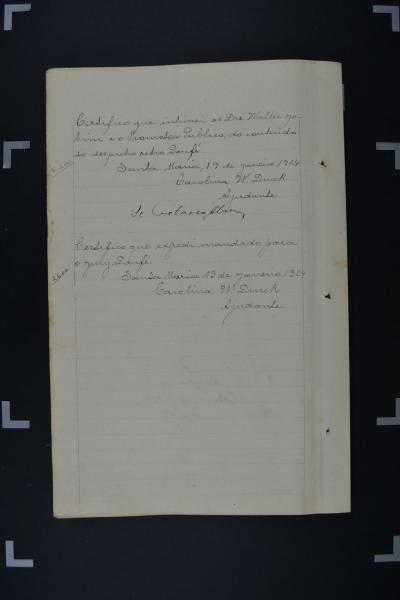 Certifico que intimei os Drs Walter Jo-
bim e o Promotor Publico, do conteúdo
do despacho retro. Doufé.
Santa Maria, 19 de janeiro 1924
Carolina W. Druck
Ajudante
Certifico que expedi mandado para
o juiz. Doufé.
Santa Maria 19 de janeiro 1924
Carolina W. Druck
Ajudante